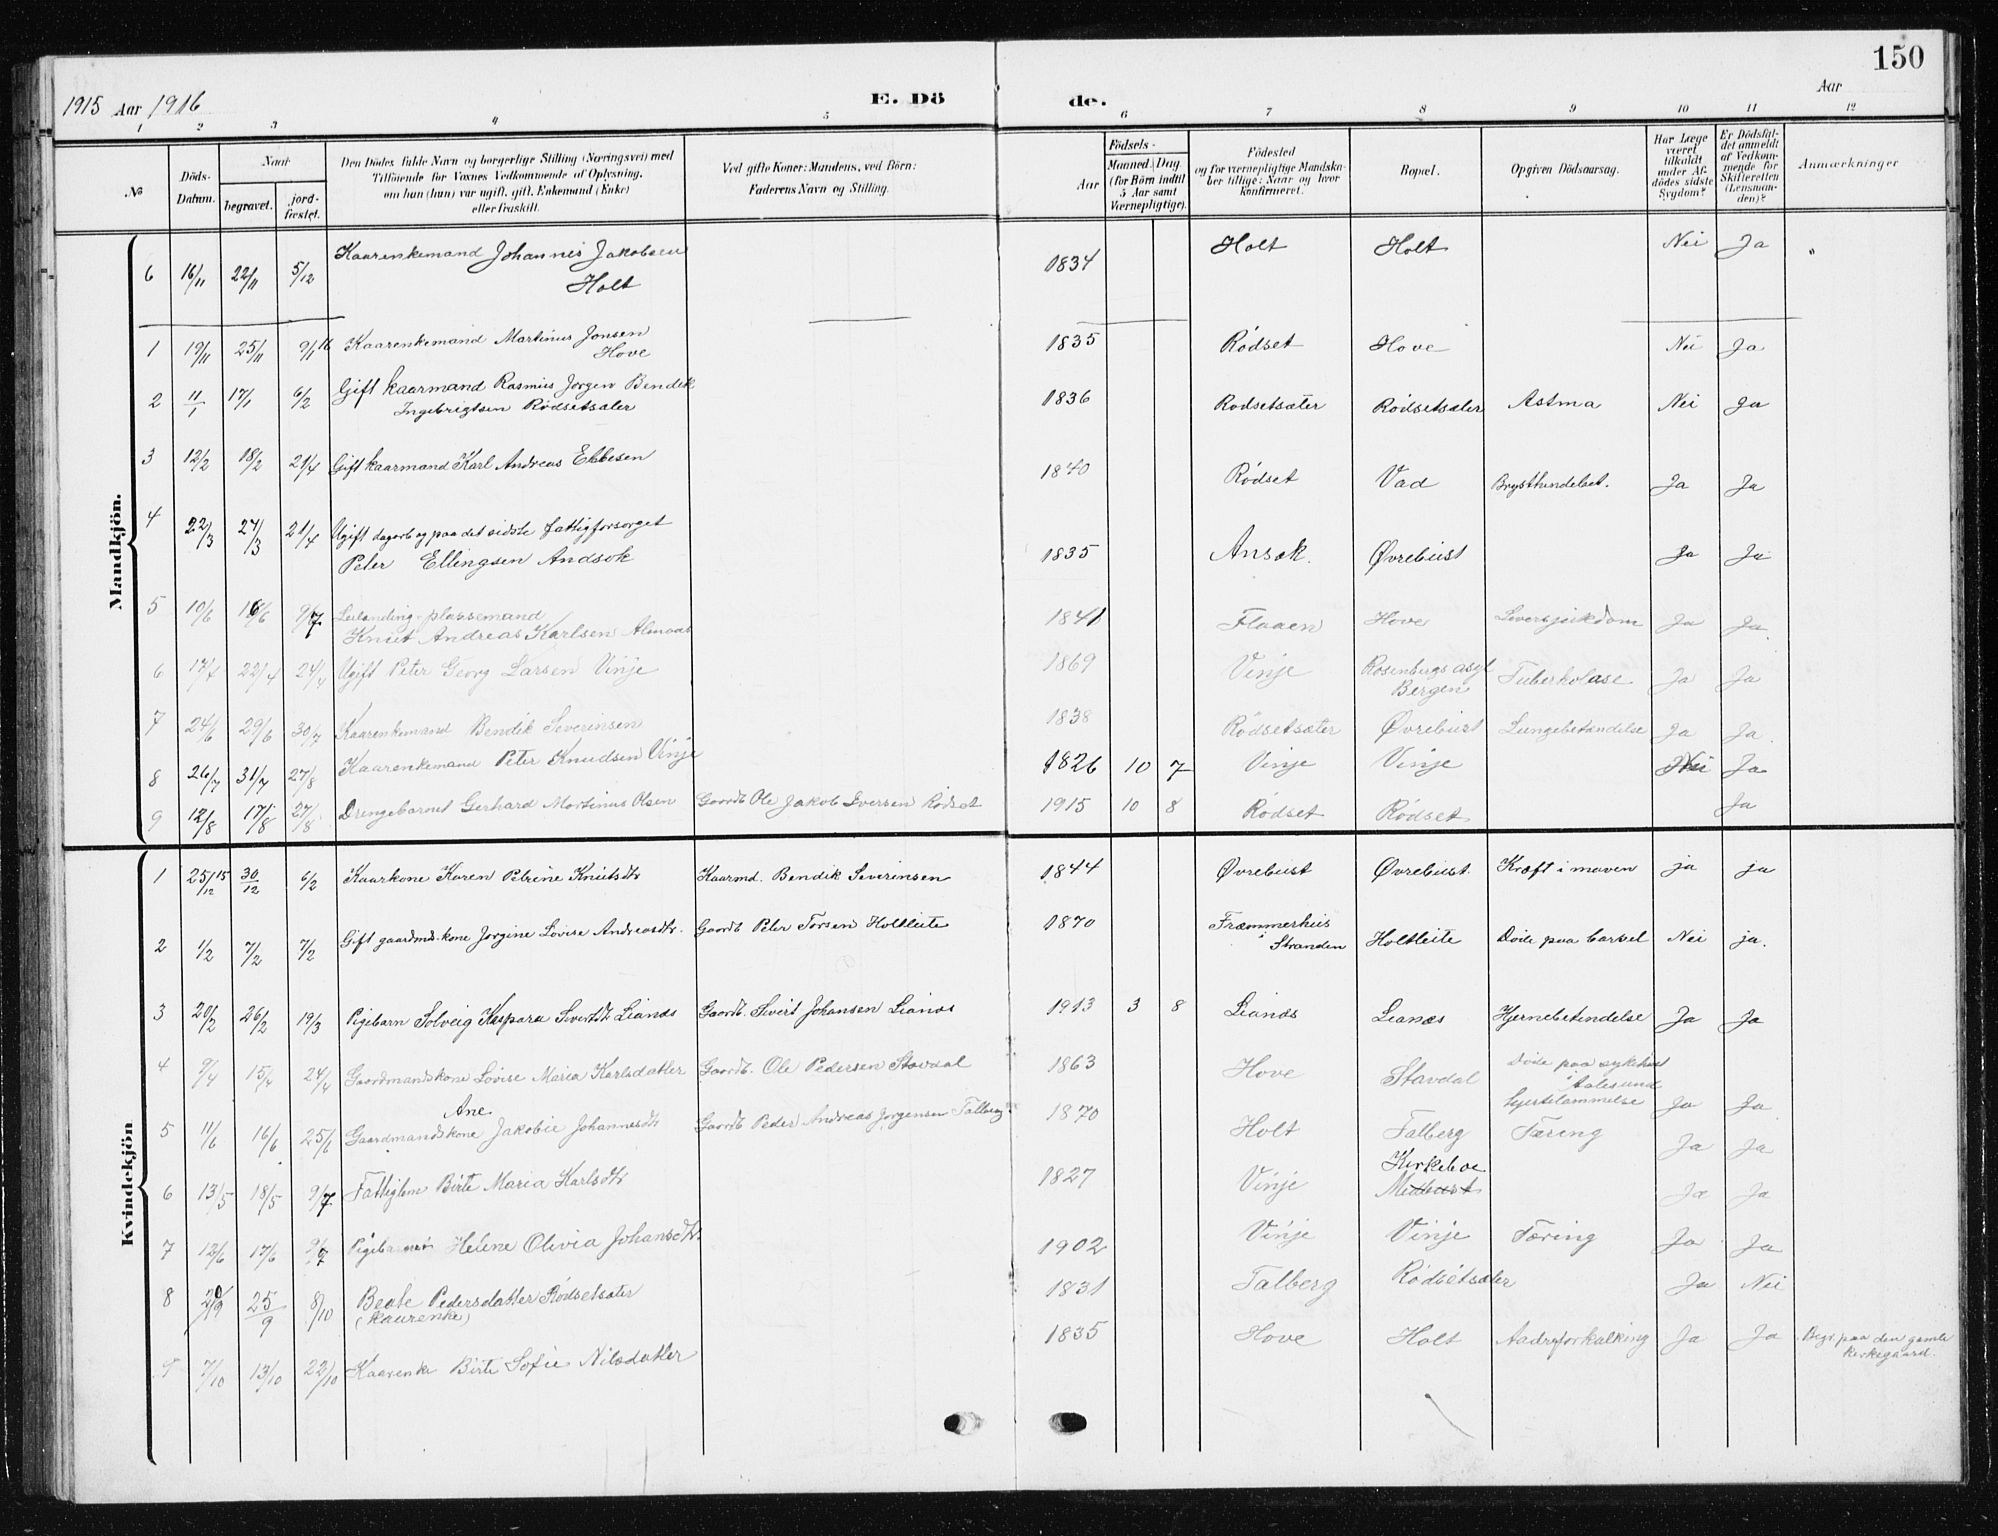 150
1915 Aar 1916 E. Dö de. Aar
1 2 3 4 5 6 7 8 9 10 11 12
№
Döds-
Datum.
Naar
begravet.
jord-
fæstet.
Den Dödes fulde Navn og borgerlige Stilling (Næringsvei) med
Tilföiende for Voxnes Vedkommende af Oplysning,
om han (hun) var ugift, gift, Enkemand (Enke)
eller fraskilt.
Ved gifte Koner: Mandens, ved Börn:
Faderens Navn og Stilling.
Födsels-
Aar
Maaned. Dag
(for Börn indtil
5 Aar samt
Værnepligtige).
Födested
og for værnepligtige Mandska-
ber tillige: Naar og hvor
konfirmeret.
Bopæl.
Opgiven Dödsaarsag.
Har Læge
været
tilkaldt
under Af-
dödes sidste
Sygdom?
Er Dödsfal-
det anmeldt
af Vedkom-
mende for
Skifteretten
(Lensman-
den)?
Anmærkninger
Mandkjön.
6 16/11 22/11 5/12 Kaarenkemand Johannes Jakobsen
Holt 1834 Holt Holt Nei Ja "
1 19/11 25/11 9/1 16 Kaarenkemand Martinus Jonsen
Hove 1835 Rödset Hove Nei Ja
2 11/1 17/1 6/2 Gift kaarmand Rasmus Jørgen Bendik
Ingebrigtsen Rødsetsæter 1836 Rødsetsæter Rødsetsæter Astma Nei Ja
3 12/2 18/2 21/4 Gift kaarmand Karl Andreas Ebbesen 1840 Rødset Vad Ja Ja
4 22/3 27/3 21/4 Ugift dagarb og paa det sidste fattigforsorget
Peter Ellingsen Andsok 1835 Ansok. Øvrebust Ja Ja
5 10/6 16/6 9/7 plassemand
Knut Andreas Karlsen Almaas 1841 Flaaen Hove Leversjukdom Ja Ja
6 17/4 22/4 24/4 Ugift Peter Georg Larsen Vinje 1869 Vinje Rosenbugs asyl
Bergen Tuberkolose Ja Ja
7 24/6 29/6 30/7 Kaarenkemand Bendik Severinsen 1838 Rødsetsæter Øvrebust Lungebetændelse Ja Ja
8 26/7 31/7 27/8 Kaarenkemand Peter Knudsen Vinje 1826 10 7 Vinje Vinje Nei Ja
9 12/8 17/8 27/8 Drengebarnet Gerhard Martinus Olsen Gaardb Ole Jakob Iversen Rødset 1915 10 8 Rødset Rødset Ja
Kvindekjön
1 25/12 15 30/12 6/2 Kaarkone Karen Petrine Knutsdtr Kaarmd. Bendik Severinsen 1844 Øvrebust Øvrebust. Kræft i maven ja ja
2 1/2 7/2 7/2 Gift gaardmds.kone Jørgine Lovise Andreasdtr. Gaardb Peter Torsen Holtleite 1870 Fræmmerhus
i Stranden Holtleite Døde paa barsel Nei ja.
3 20/2 26/2 19/3 Pigebarn Solveig Kaspara Sivertdtr Lianes Gaardb. Sivert Johansen Lianes 1913 3 8 Lianes Lianes Hjernebetendelse Ja Ja
4 9/4 15/4 24/4 Gaardmandskone Lovise Maria Karlsdatter Gaardb. Ole Pedersen Stavdal 1863 Hove Stavdal Døde paa sykehus
i Aalesund
hjertelammelse Ja Ja
Ane
5 11/6 16/6 25/6 Gaardmandskone Jakobie Johannesdtr Gaardb Peder Andreas Jørgensen Talberg 1870 Holt Talberg Tæring Ja Ja
6 13/5 18/5 9/7 Fattiglem Birte Maria Karlsdtr 1827 Vinje Kirkeboe
Medbust Ja Ja
7 12/6 17/6 9/7 Helene Olivia Johansdtr. 1902 Vinje Vinje Tæring Ja Ja
8 20/9 25/9 8/10 Beate Pedersdatter Rødsetsæter
(kaarenke) 1831 Talberg Rødsetsæter Ja Nei
9 7/10 13/10 22/10 Kaarenke Birte Sofie Nilsdatter 1835 Hove Holt Aadreforkalking Ja Ja Begr. paa den gamle
kirkegaard.